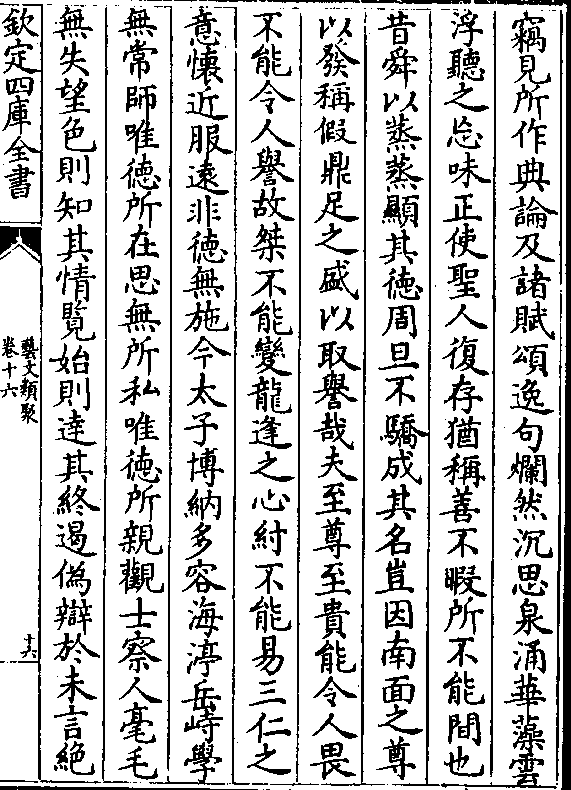 竊見所作典論及諸賦頌逸句爛然沉思泉涌華藻雲
浮聽之忘味正使聖人復存猶稱善不暇所不能間也
昔舜以蒸蒸顯其德周旦不驕成其名豈因南面之尊
以發稱假鼎足之盛以取譽哉夫至尊至貴能令人畏
不能令人譽故桀不能變龍逢之心紂不能易三仁之
意懷近服遠非德無施今太子博納多容海渟岳峙學
無常師唯德所在思無所私唯德所親觀士察人毫毛
無失望色則知其情覽始則達其終遏偽辯於未言絕
欽定四庫全書
藝文類聚
卷十六
十六